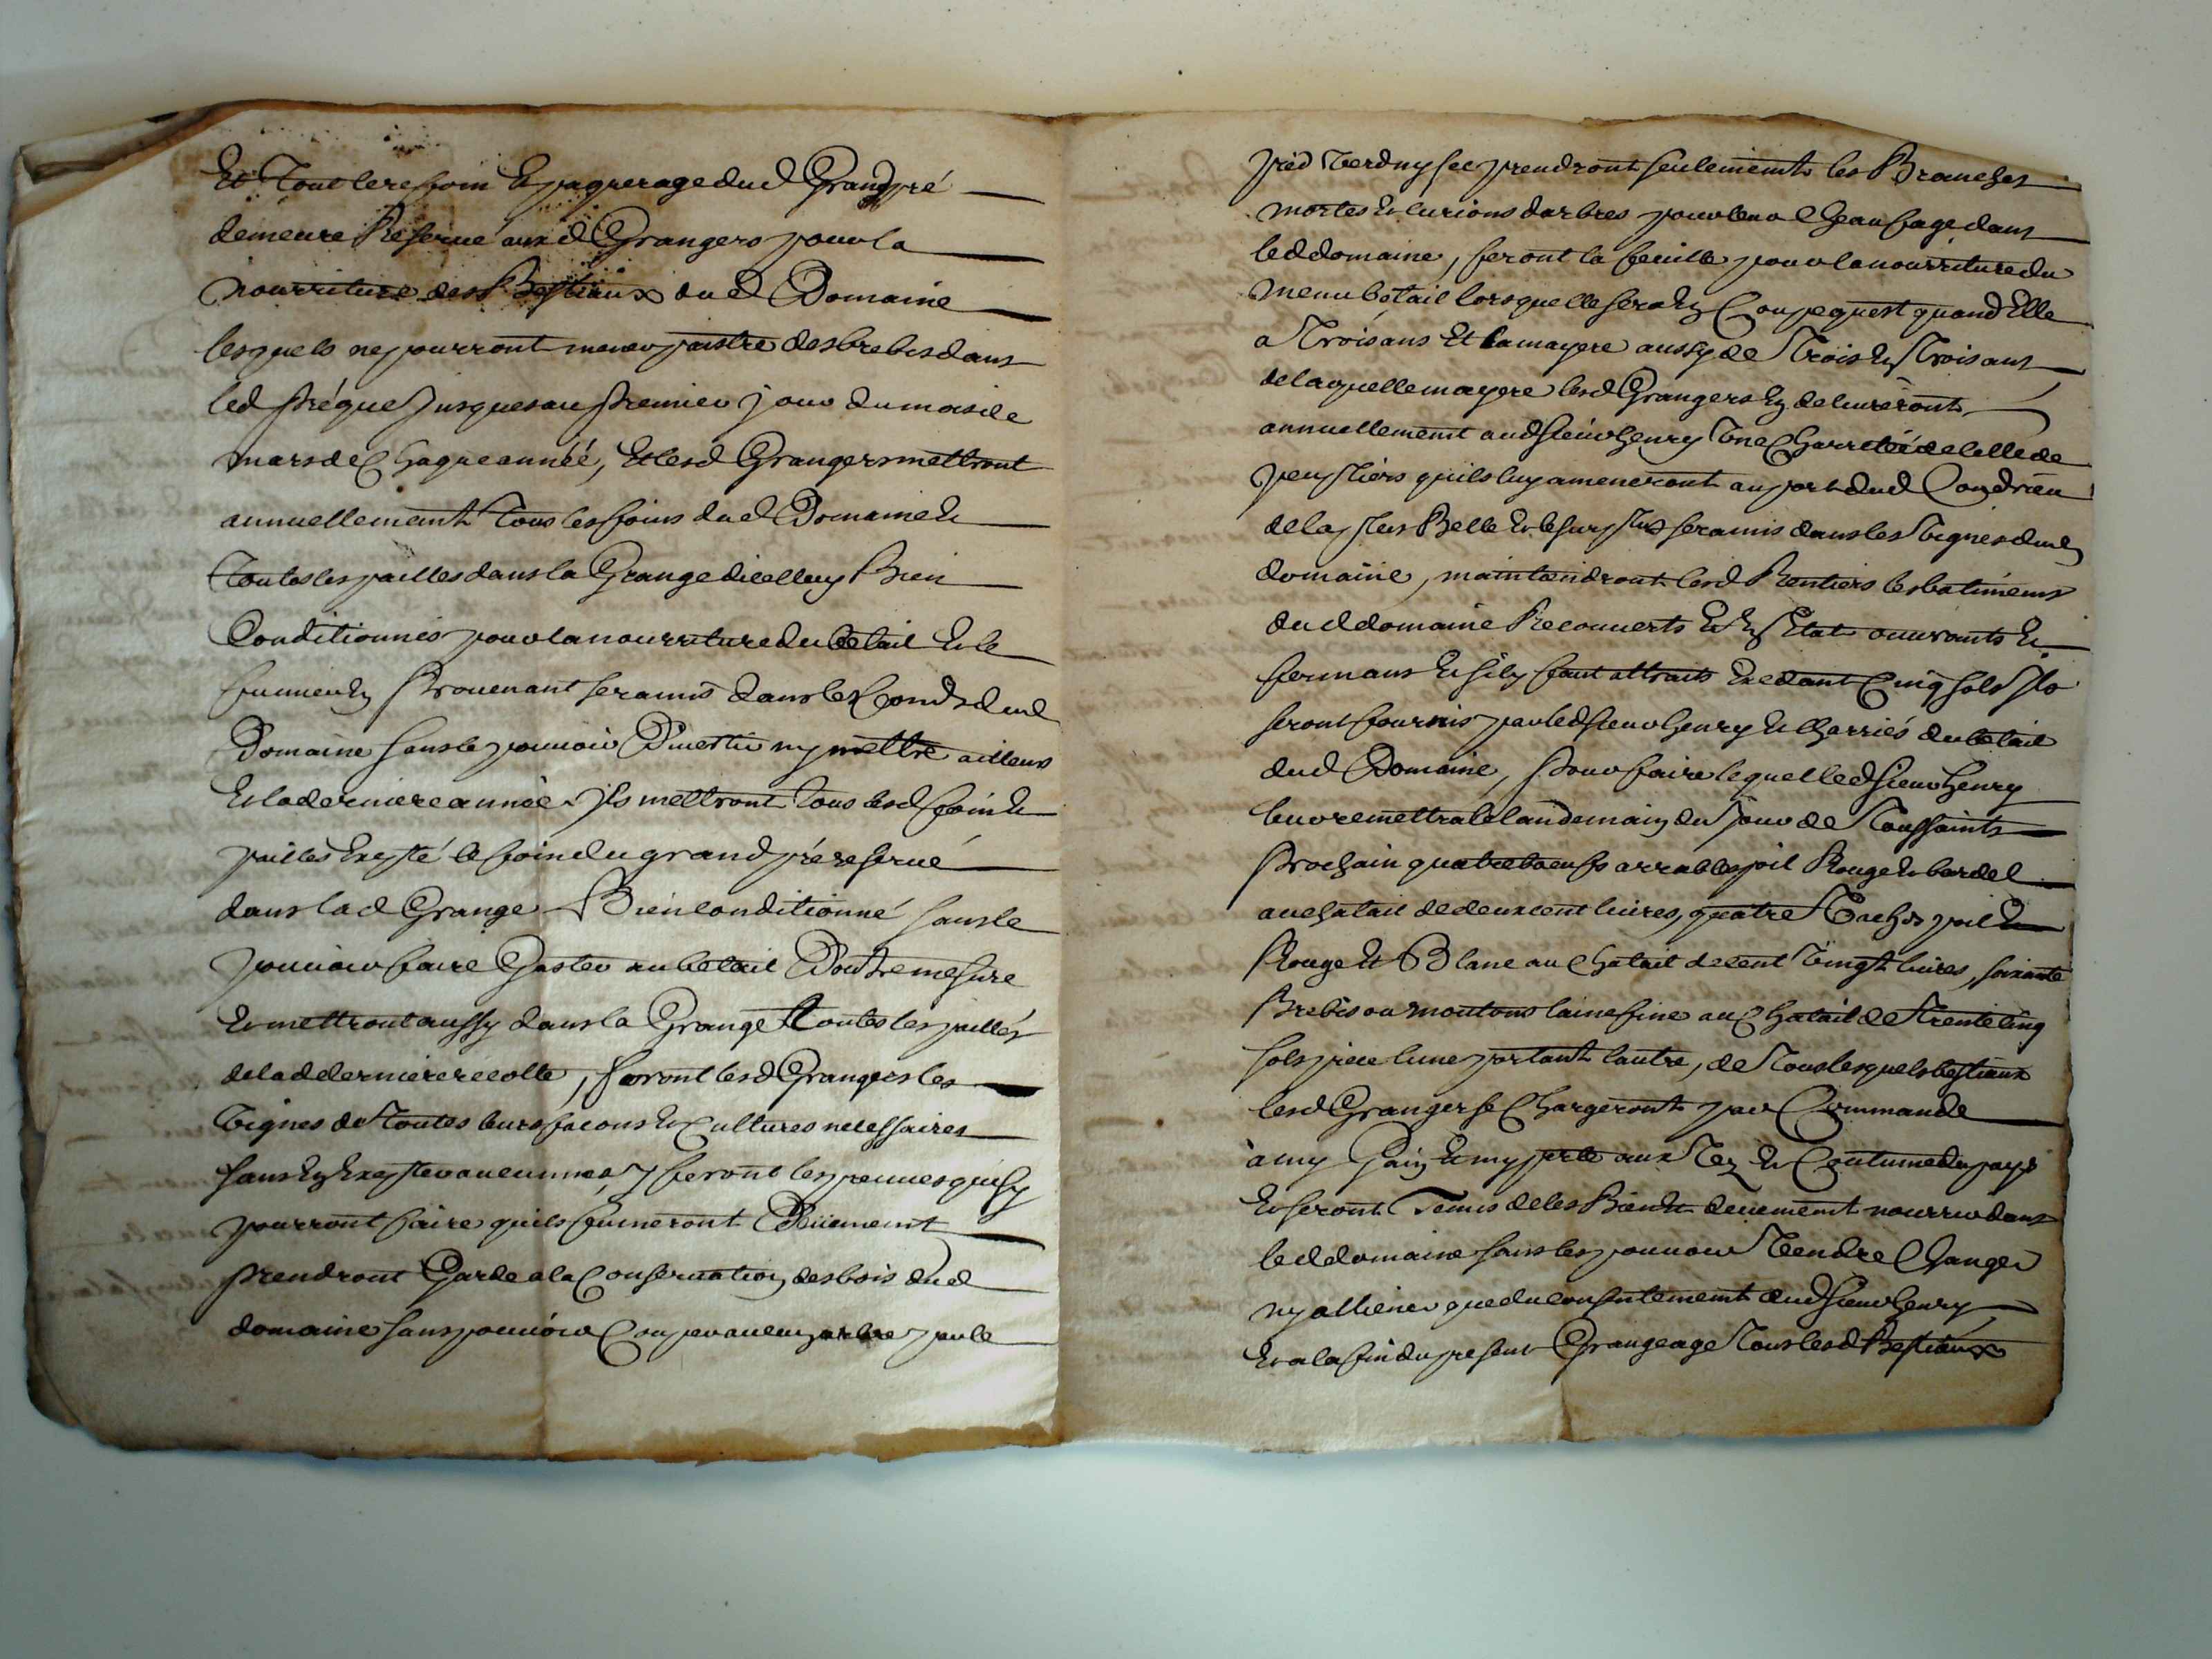 Et Tout le resfoin Et paquerage dud Grand pré
demeure Reserué auxd Grangers pour la
Nourriture des Bestiaux dud Domaine
lesquels ne pourront mener paistre des brebis dans
led pré que Jusques au premier jour du mois de
mars de Chaque année, Et lesd Grangers mettront
annuellement Tous les foins dud Domaine Et
Toutes les pailles dans la Grange dicelluy Bien
Conditionnés pour la nourriture du betail Et le
fumier En Prouenant sera mis dans les fonds dud
Domaine sans le pouuoir Diuertir ny mettre ailleurs
Et la derniere année Jls mettront Tous lesd foin Et
pailles Exepté le foin du grand pré reserué
dans lad Grange Bien conditionné sans le
pouuoir faire Gaster au betail Doutre mesure
Et mettront aussy dans la Grange Toutes les pailles
de lad derniere recolte, feront lesd Grangers les
Vignes de Toutes leurs facons Et Cultures necessaires
sans En Exepter aucunnes y feront les preuues quisy
pourront faire quils fumeront Düement
prendront Garde a la Conseruation des bois dud
domaine sans pouuoir Couper aucun arbre par le
pied Verd ny sec prendront seulement les Branches
mortes Et curions darbres pour leur Chauffage dans
led domaine, feront la feuille pour la nourriture du
menu betail lors quelle sera En Coupe quest quand Elle
a Trois ans Et la mayere aussy de Trois En Trois ans
de laquelle mayere lesd Grangers En deliureront
annuellement aud sieur henry Vne Charretée de celle de
peupliers quils luy ameneront au port dud Condrieu
de la plus Belle Et le surplus sera mis dans les Vignes dud
domaine, maintiendront lesd Rentiers les batiments
dud domaine Recouuerts Et En Etat ouurants Et
fermans Et sil y faut attraits Exedant Cinq sols Jls
seront fournis par led sieur henry Et Charriés du betail
dud Domaine, Pour faire lequel led sieur henry
leur remettra le landemain du Jour de Toussaints
Prochain quatre boeufs arrables poil Rouge Et bardel
au Chatail de deux cent liures, quatre Vaches poil
Rouge Et Blanc au Chatail de cent Vingt liures, soixante
Brebis ou moutons laine fine au Chatail de Trente cinq
sols piece lune portant lautre, de Tous lesquels bestiaux
lesd Grangers se Chargeront par Commande
à my Gain Et my perte aux Vz Et Coutume du pays
Et seront Tenus de les Bien Et deuement nourrir dans
led domaine sans les pouuoir Vendre Changer
ny alliener que du consentement dud sieur henry
Et a la fin du present Grangeage Tous lesd Bestiaux